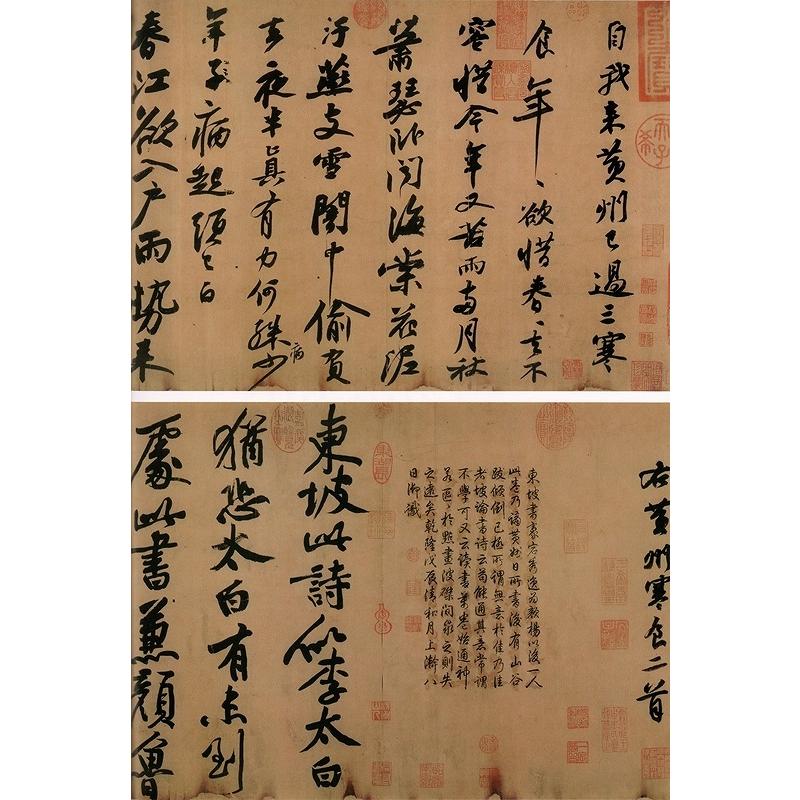 自我来黄州已過三寒
食年〻欲惜春〻去不
容惜今年又苦雨兩月秋
蕭瑟卧聞海棠花泥
汙燕支雪闇中偷負
去夜半真有力何殊少
病
年子病起頭已白
春江欲入戶雨勢来
右黄州寒食二首
東坡書豪宕秀逸為顏楊以後一人
此卷乃謫黄州日所書後有山谷
跋傾倒已極所謂無意於佳乃佳
者坡論書詩云苟能通其意常謂
不學可又云讀書萬卷始通神
若區〻於點畫波磔間求之則失
之遠矣乾隆戊辰清和月上澣八
日御識
東坡此詩似李太白
猶恐太白有未到
處此書兼顏魯